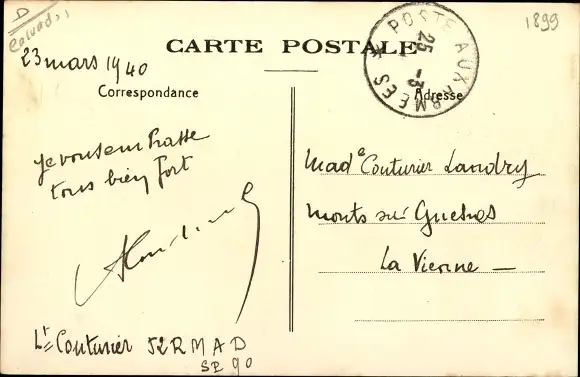 D
Calvados
1899
CARTE POSTALE
POSTE AUX ARMEES
25 -3
23 mars 1940
Correspondance
Adresse
Je vous embrasse
tous bien fort
Lt Couturier 52 R M A D
SP 90
Made Couturier Landry
Monts sur Guesnes
La Vienne —